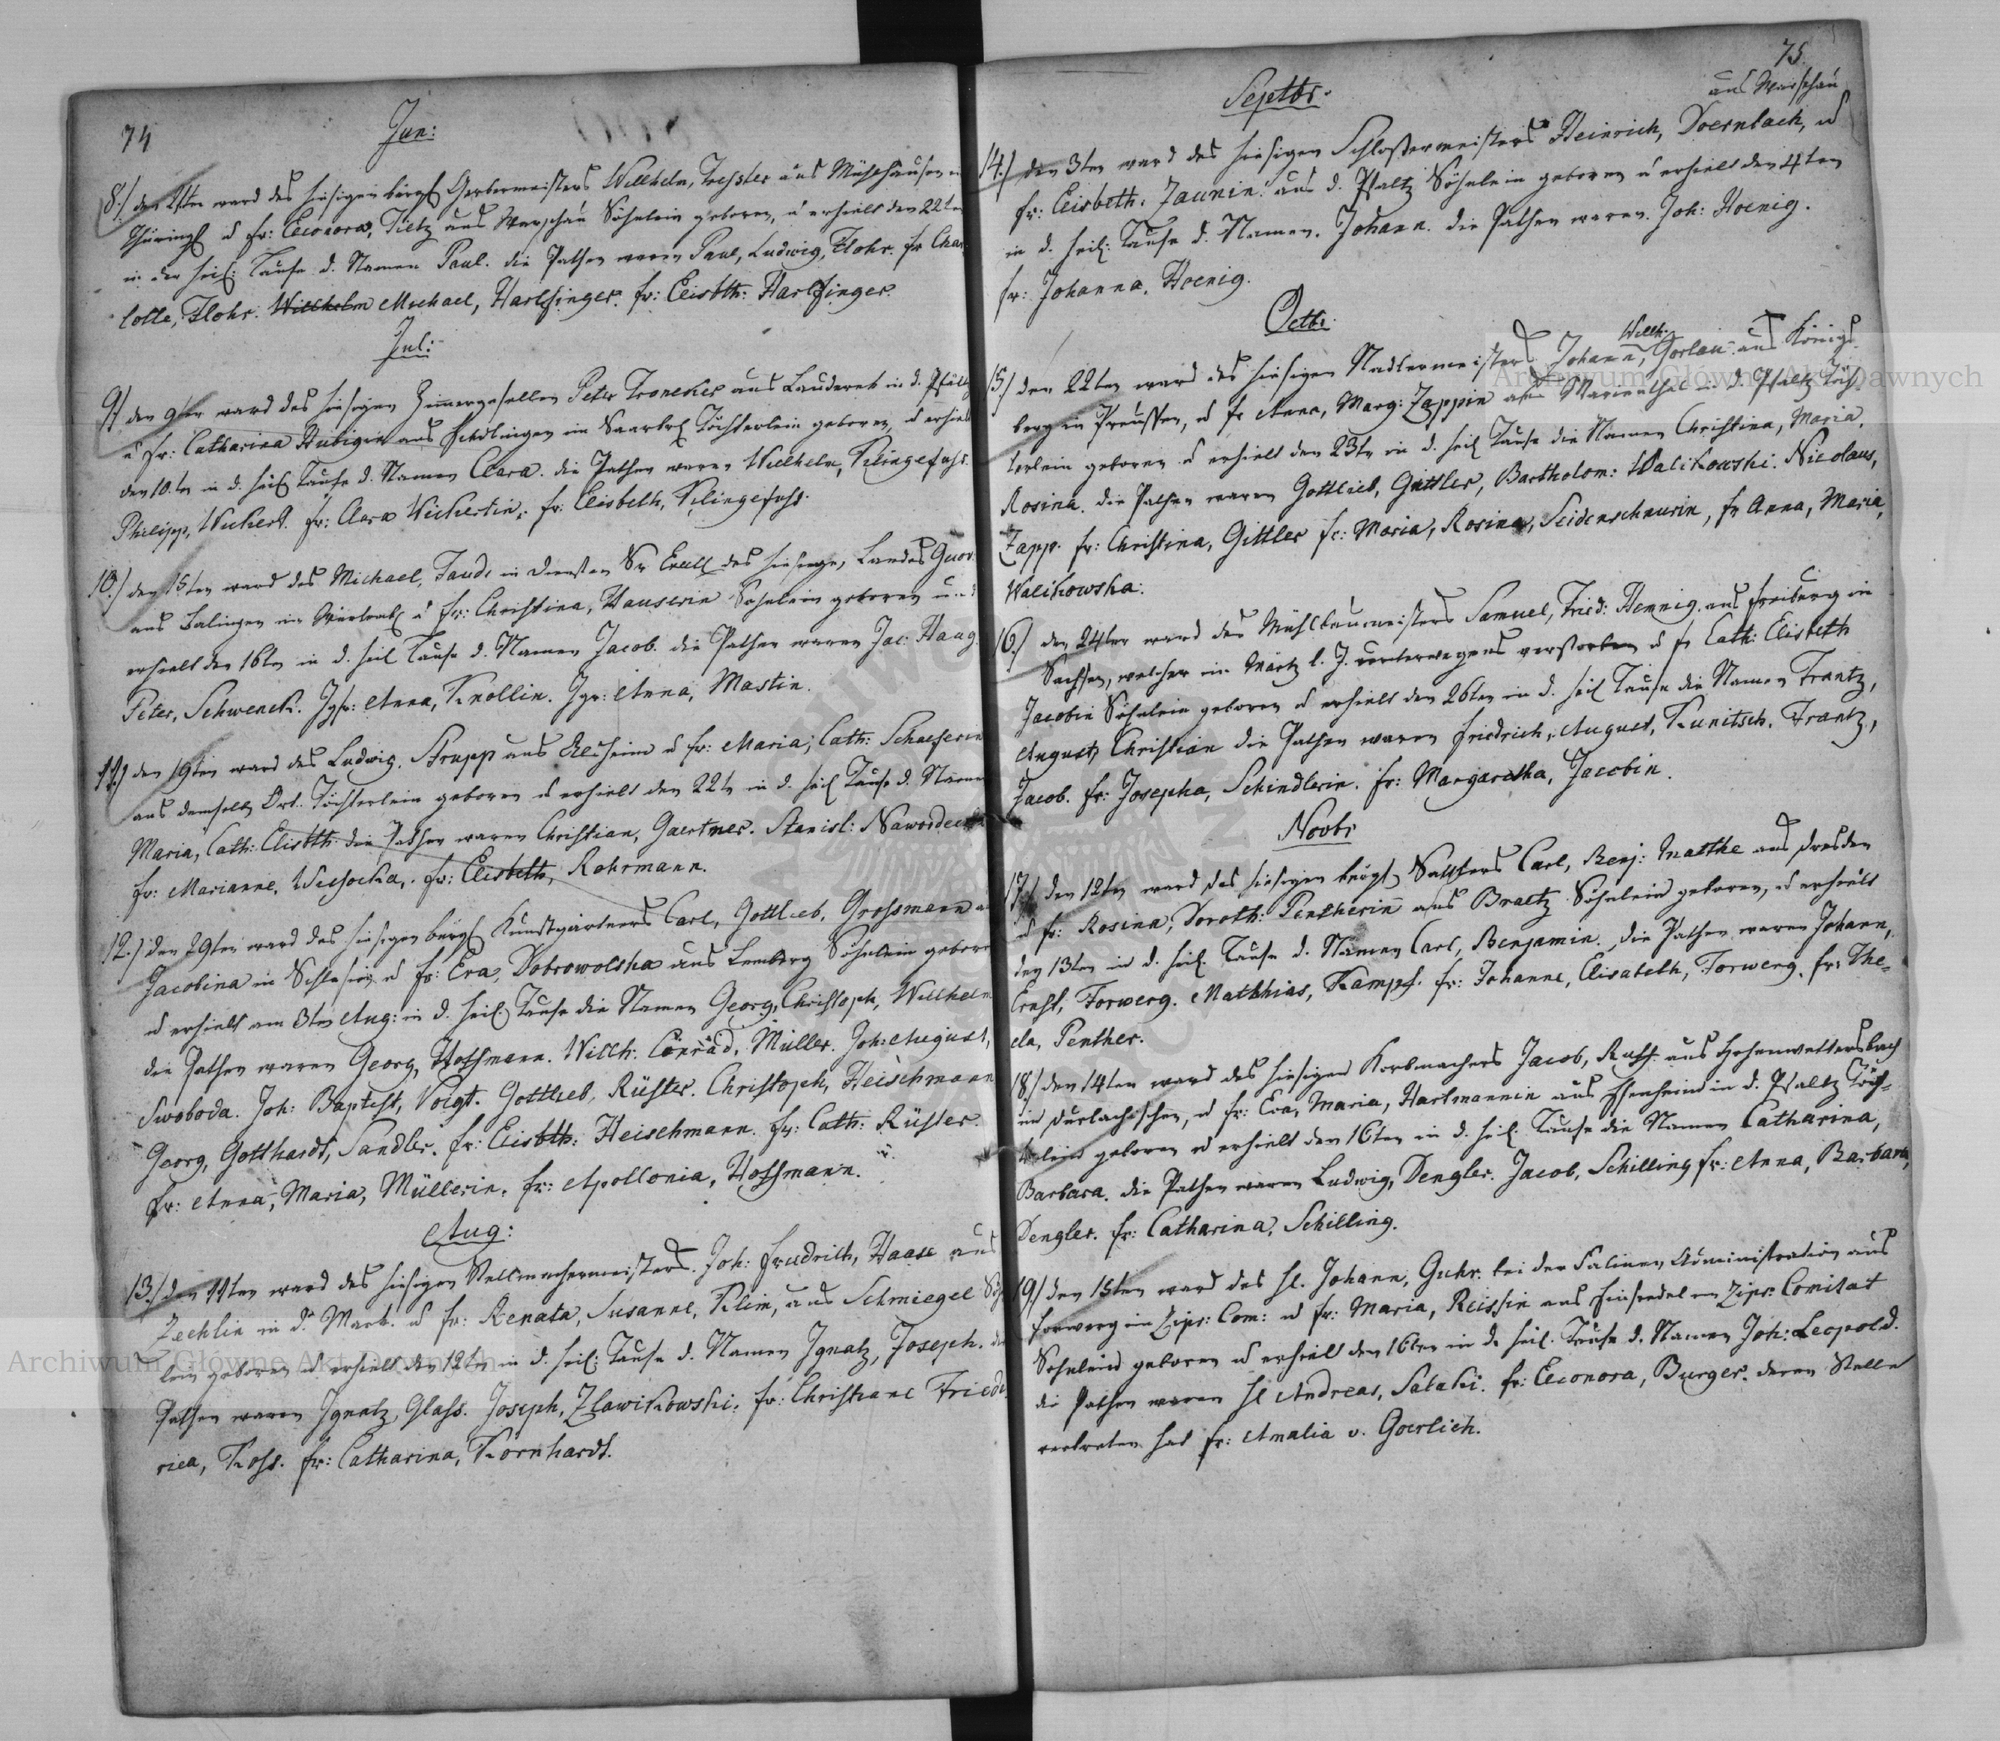 74
Jun:
8.) den 21ten ward des hiesigen bürgl Gerbermeisters Willhelm, Tressler aus Mühlhausen in
Thüringl u fr: Eleonora, Tietz aus Warschau Söhnlein geboren, u erhielt den 22ten
in der heil: Taufe d. Namen Paul. die Pathen waren Paul, Ludwig, Flohr. fr Char
lotte, Flohr. Willhelm Michael, Harlfinger. fr: Elisbth: Harlfinger.
Jul:
9.) den 9ter ward des hiesigen Zimmergesellen Peter Tronecker aus Lauderek in d. Pfaltz
u fr: Catharina Hubigin aus in Saarbrl Töchterlein geboren, u erhielt
den 10.tn in d. heil Taufe d. Namen Clara. die Pathen waren Willhelm, Klingefuss.
Philipp, Wickert. fr: Clara Wickertin, fr: Elisbeth, Klingefuss.
10.) den 15ten ward des Michael, Taude in Diensten Sr Excell des hiesigen, Landes Guov:
aus Balingen im Würtenbl u fr: Christina, Hauserin Sohnlein geboren u
erhielt den 16tn in d. heil Taufe d. Namen Jacob. die Pathen waren Jac: Haag.
Peter, Schwenck. Jgfr: Anna, Knollin. Jgr: Anna, Mastin.
11.) den 19ten ward des Ludwig, Strupp aus u fr: Maria, Cath: Schaeferin
aus demselb Ort. Töchterlein geboren u erhielt den 22tn in d. heil Taufe d. Namen
Maria, Cath: Elisbth: die Pathen waren Christian, Gaertner. Stanisl:
fr: Marianne, Wisocka, fr: Elisbeth, Rohrmann.
12.) den 29ten ward des hiesigen bürgl Kunstgärtners Carl, Gottlieb, Grossmann
Jacobina in Schlesien u fr: Eva, Dobrowolska aus Lemberg Söhnlein geboren
u erhielt am 3tn Aug: in d. heil. Taufe die Namen Georg, Christoph, Willhelm
die Pathen waren Georg, Hoffmann. Willh: Conrad, Müller. Joh: August,
Swoboda. Joh: Baptist, Voigt. Gottlieb, Rüster. Christoph, Heischmann
Georg, Gotthardt, Sandler. fr: Elisbth: Heischmann. fr: Cath: Rüster.
fr: Anna, Maria, Müllerin. fr: Apollonia, Hoffmann.
Aug:
13.) den 11ten ward des hiesigen Stellmachermeisters Joh: Friedrich, Haase aus
Zechlin in d. Mark. u fr: Renata, Susanne, Klim, aus Schmiegel Söh
lein geboren u erhielt den 12tn in d. heil: Taufe d. Namen Ignatz, Joseph. die
Pathen waren Ignatz, Glass. Joseph, Zlawikowski. fr: Christiane Friede
rica, Koss. fr: Catharina, Kornhardt.
75.
Septbr.
aus Warschau
14.) den 3tn ward des hiesigen Schlossermeisters Heinrich, Doernbach, u
fr: Elisbeth: Zaunin. aus d. Pfaltz Söhnlein geboren u erhielt den 4ten
in d. heil: Taufe d. Namen. Johann. die Pathen waren. Joh: Hoenig.
fr: Johanna, Hoenig.
Octbr
15.) den 22ten ward des hiesigen Nadlermeisters Johann, Willh: Gorlau aus Königs
berg in Preussen, u fr Anna, Marg: Zappin aus Marienthal in d. Pfaltz Töch
terlein geboren u erhielt den 23tn in d. heil Taufe die Namen Christina, Maria,
Rosina. die Pathen waren Gottlieb, Gittler, Bartholom: Walikowski. Nicolaus,
Zapp. fr: Christina, Gittler fr: Maria, Rosina, Seidenschnurin, fr Anna, Maria,
Walikowska:
16.) den 24ter ward des Mühlbaumeisters Samuel, Fried: Hennig, aus Freiberg in
Sachsen, welcher im Märtz l. J. unterwegens verstorben u fr Cath: Elisbeth
Jacobin Söhnlein geboren u erhielt den 26ten in d. heil Taufe die Namen Frantz,
August, Christian die Pathen waren Friedrich, August, Kunitsch. Frantz,
Jacob. fr: Josepha, Schindlerin. fr: Margaretha, Jacobin.
Novbr
17.) den 12ten ward des hiesigen bürgl Sattlers Carl, Benj: Matthe aus Dresden
u fr: Rosina, Doroth: Pentherin aus Braetz Söhnlein geboren, u erhielt
den 13tn in d. heil. Taufe d. Namen Carl, Benjamin. die Pathen waren Johann,
Ernst, Forwerg. Matthias, Kampf. fr: Johanne, Elisabeth, Forwerg. fr: The=
cla, Penther.
18.) den 14ten ward des hiesigen Korbmachers Jacob, Ruff. aus Hohenwettersbach
im Durlachischen, u fr: Eva, Maria, Hartmannin aus in d. Pfaltz Töch=
terlein geboren u erhielt den 16ten in d. heil. Taufe die Namen Catharina,
Barbara. die Pathen waren Ludwig, Dengler. Jacob, Schilling fr: Anna, Barbara,
Dengler. fr: Catharina, Schilling.
19.) den 15ten ward des H. Johann, Guhr. bei der Salinen Administration aus
Forwerg im Zips: Com: u fr: Maria, Reissin aus Einsiedel im Zips: Comitat
Sohnlein geboren u erhielt den 16ten in d. heil. Taufe d. Namen Joh: Leopold.
die Pathen waren H Andreas, Salaki. fr: Eleonora, Burger. deren Stelle
vertreten hat fr: Amalia v. Goerlich.
Archiwum Główne Akt Dawnych
Archiwum Główne Akt Dawnych